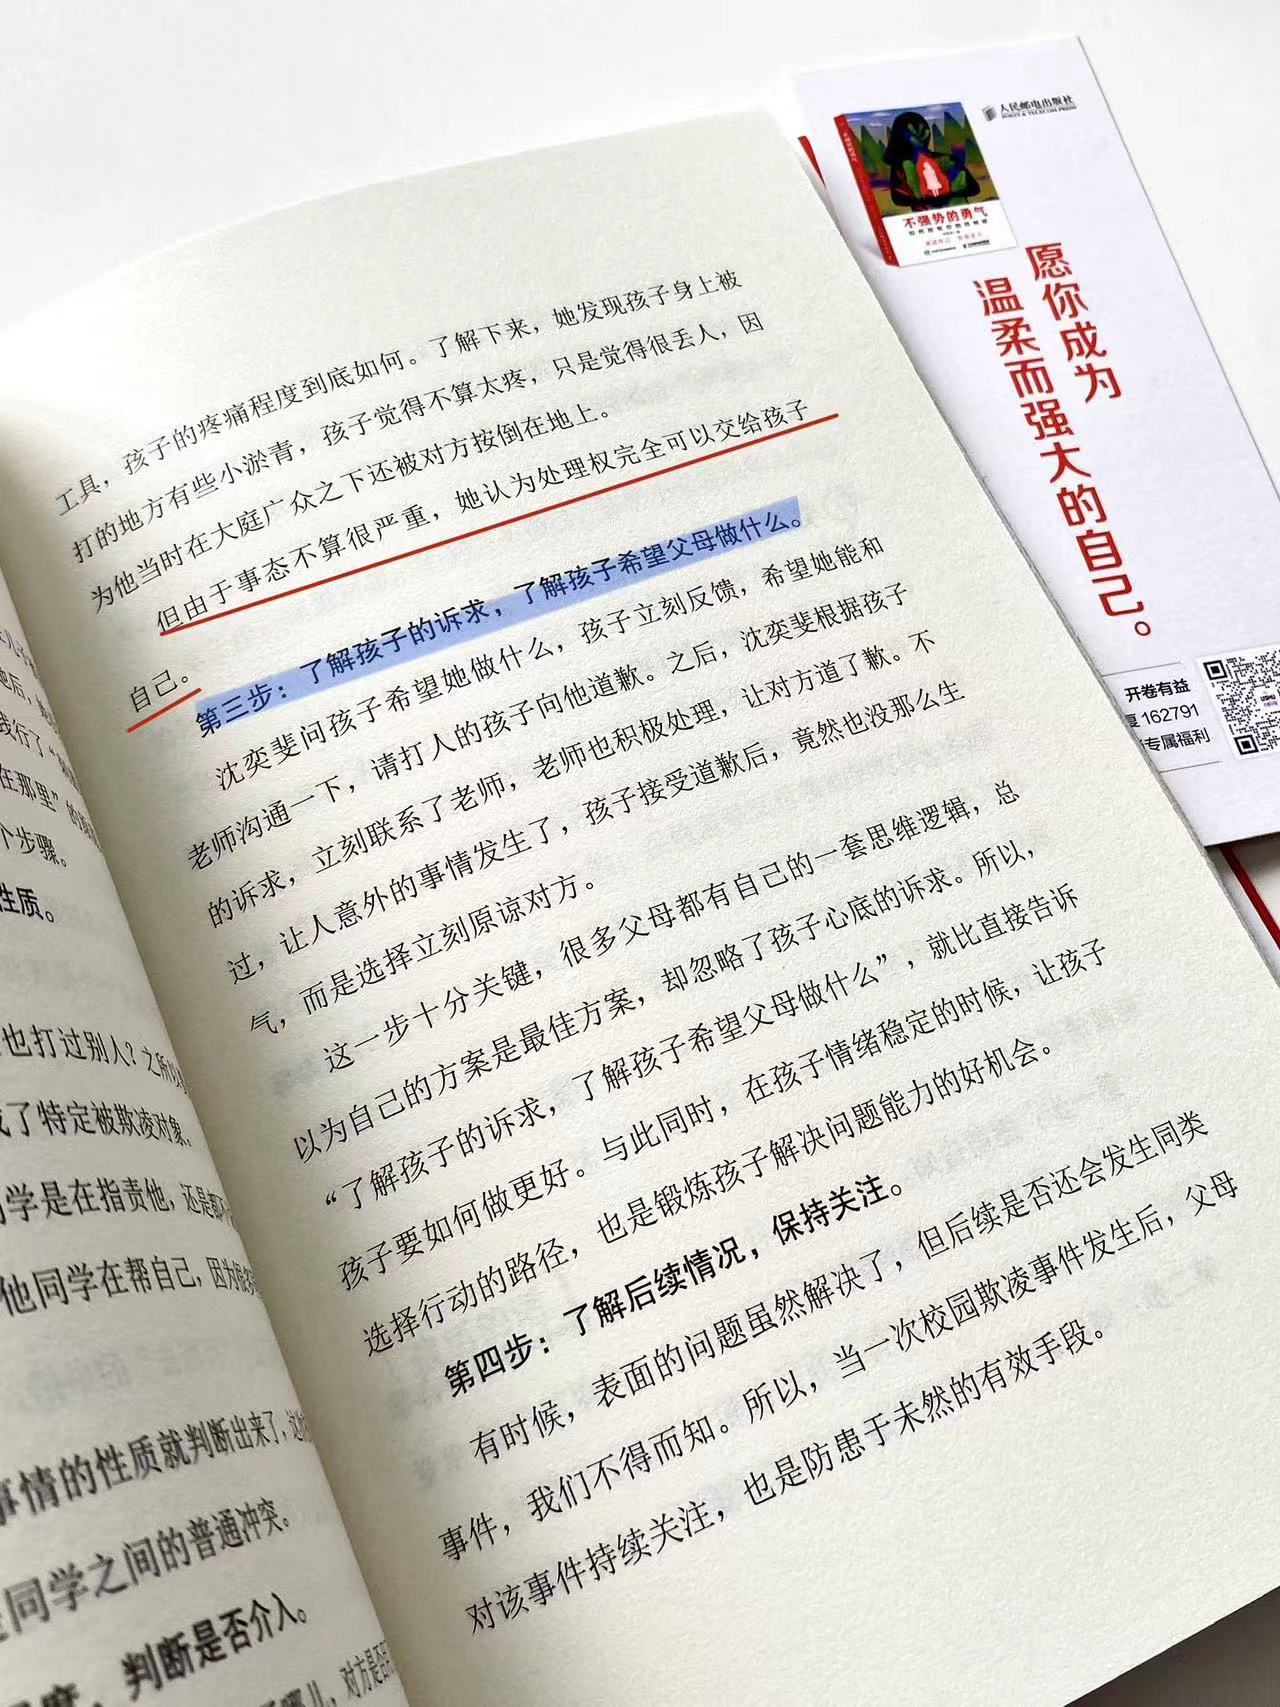 也打过别人？之所以
了特定被欺凌对象。
学是在指责他，还是都不
他同学在帮自己，因为很多
事情的性质就判断出来了，这
同学之间的普通冲突。
判断是否介入。
在那里”的
个步骤。
性质。
工具，孩子的疼痛程度到底如何。了解下来，她发现孩子身上被
打的地方有些小淤青，孩子觉得不算太疼，只是觉得很丢人，因
为他当时在大庭广众之下还被对方按倒在地上。
但由于事态不算很严重，她认为处理权完全可以交给孩子
自己。
第三步：了解孩子的诉求，了解孩子希望父母做什么。
沈奕斐问孩子希望她做什么，孩子立刻反馈，希望她能和
老师沟通一下，请打人的孩子向他道歉。之后，沈奕斐根据孩子
的诉求，立刻联系了老师，老师也积极处理，让对方道了歉。不
过，让人意外的事情发生了，孩子接受道歉后，竟然也没那么生
气，而是选择立刻原谅对方。
这一步十分关键，很多父母都有自己的一套思维逻辑，总
以为自己的方案是最佳方案，却忽略了孩子心底的诉求。所以，
“了解孩子的诉求，了解孩子希望父母做什么”，就比直接告诉
孩子要如何做更好。与此同时，在孩子情绪稳定的时候，让孩子
选择行动的路径，也是锻炼孩子解决问题能力的好机会。
第四步：了解后续情况，保持关注。
有时候，表面的问题虽然解决了，但后续是否还会发生同类
事件，我们不得而知。所以，当一次校园欺凌事件发生后，父母
对该事件持续关注，也是防患于未然的有效手段。
人民邮电出版社
POSTS & TELECOM PRESS
不强势的勇气
愿你成为
温柔而强大的自己。
开卷有益
复 162791
专属福利